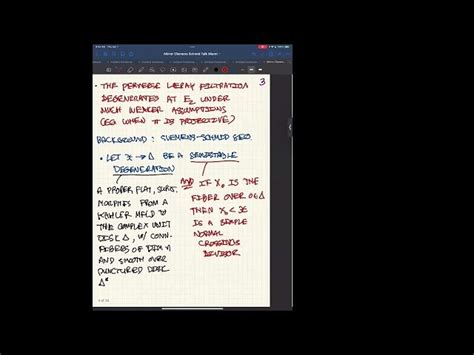 3
• THE PERVERSE LERAY FILTRATION
DEGENERATES AT E₂ UNDER
MUCH WEAKER ASSUMPTIONS
(EG WHEN π IS PROJECTIVE)
BACKGROUND: CLEMENS-SCHMID SEQ
• LET X → Δ BE A SEMISTABLE
DEGENERATION
A PROPER, FLAT, SURJ.
MORPHISM FROM A
KÄHLER MFLD TO
THE COMPLEX UNIT
DISK Δ, W/ CONN.
FIBERS OF DIM n
AND SMOOTH OVER
PUNCTURED DISK
Δ*
AND IF X₀ IS THE
FIBER OVER 0∈Δ
THEN X₀ < X
IS A SIMPLE
NORMAL
CROSSINGS
DIVISOR